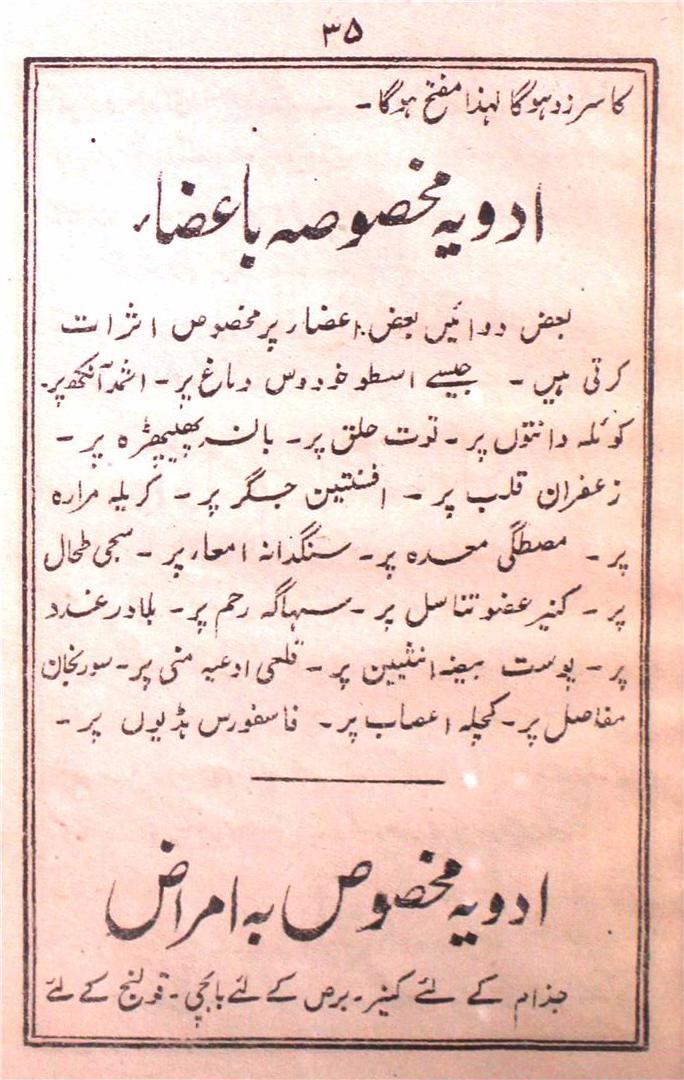 ۳۵
کا سرزد ہوگا لہذا مفتح ہوگا۔
ادویہ مخصوصہ باعضاء
بعض دوائیں بعض اعضاء پر مخصوص اثرات
کرتی ہیں ۔ جیسے اسطوخودوس دماغ پر۔ اثمد آنکھ پر۔
کوئلہ دانتوں پر۔ توت حلق پر۔ بانسہ پھیپھڑہ پر ۔
زعفران قلب پر ۔ افسنتین جگر پر ۔ کریلہ مرارہ
پر ۔ مصطگی معدہ پر۔ سنگدانہ امعاء پر ۔ سجی طحال
پر ۔ کنیر عضو تناسل پر ۔ سہاگہ رحم پر۔ بلادر غدد
پر ۔ پوست بیضہ انثیین پر ۔ قلعی ادعیہ منی پر۔ سورنجان
مفاصل پر۔ کچلہ اعصاب پر۔ فاسفورس ہڈیوں پر ۔
ادویہ مخصوص بہ امراض
جذام کے لئے کنیر۔ برص کے لئے بابچی ۔ قولنج کے لئے